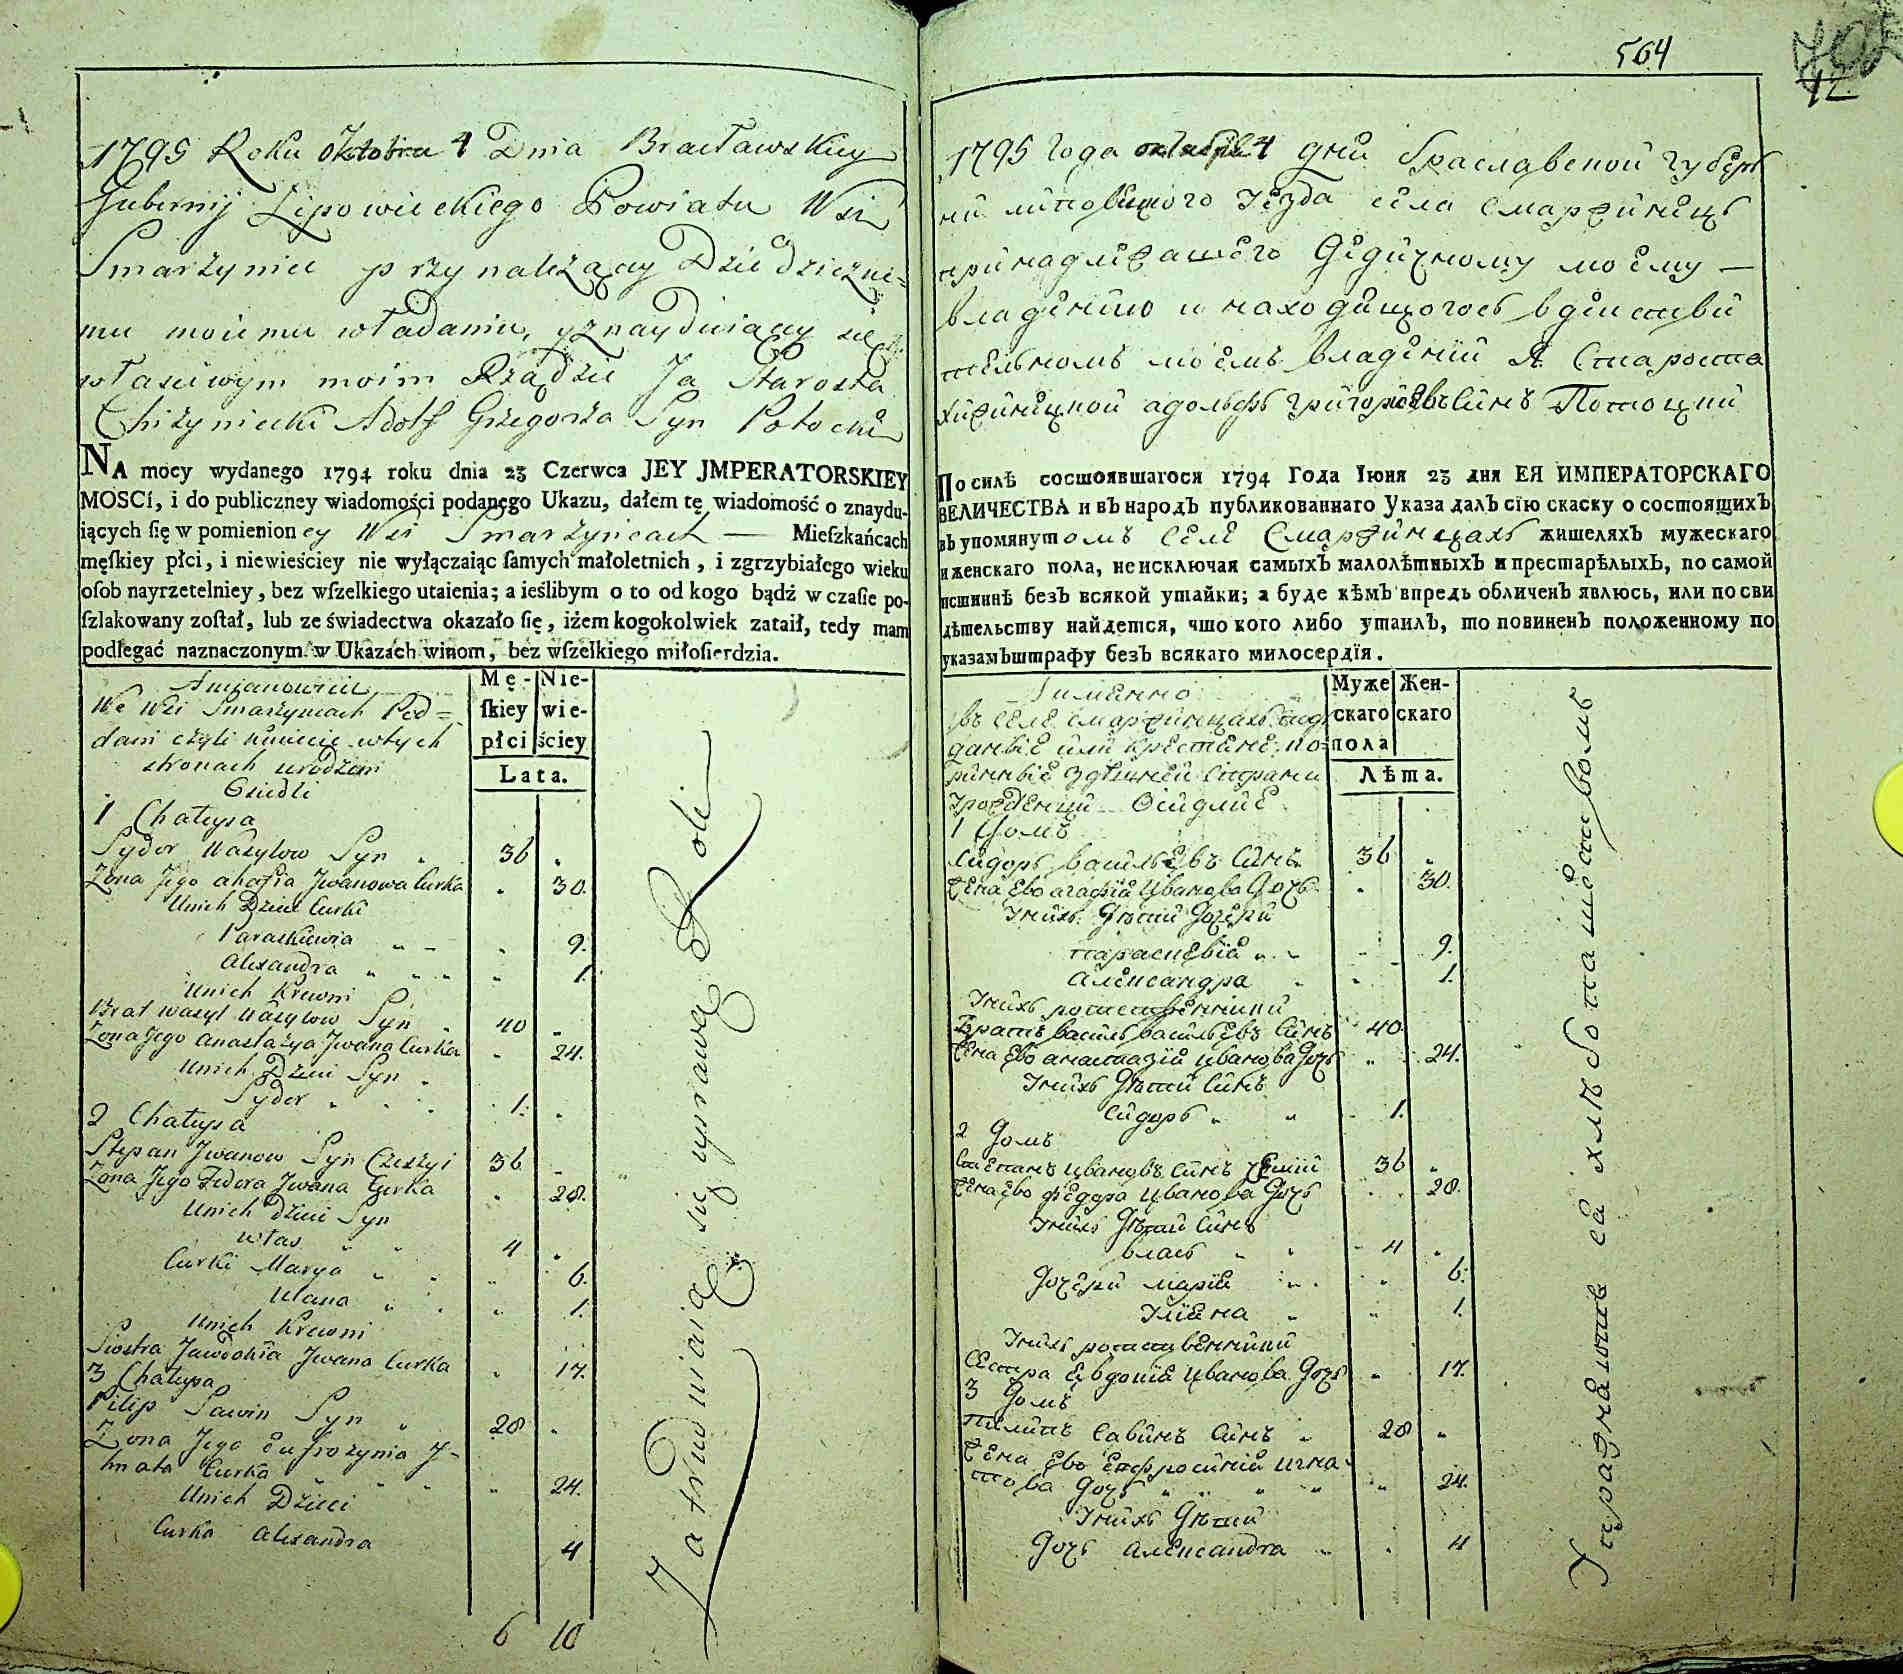 1795 Roku Oktobra 4 Dnia Bracławskiey
Gubernij Lipowieckiego Powiatu Wsi
Smarżyniec przynależącey Dziedziczne=
mu moiemu władaniu, y znayduiącey się
właściwym moim Rządzie Ja Starosta
Chiżyniecki Adolf Grzegorza Syn Potocki
NA mocy wydanego 1794 roku dnia 23 Czerwca JEY JMPERATORSKIEY
MOSCI, i do publiczney wiadomości podanego Ukazu, dałem tę wiadomość o znaydu-
iących się w pomienioney Wsi Smarżyńcach — Mieſzkańcach
męſkiey płci, i niewieściey nie wyłączaiąc ſamych małoletnich, i zgrzybiałego wieku
oſob nayrzetelniey, bez wſzelkiego utaienia; a ieślibym o to od kogo bądź w czaſie po-
ſzlakowany zoſtał, lub ze świadectwa okazało ſię, iżem kogokolwiek zataił, tedy mam
podlegać naznaczonym w Ukazach winom, bez wſzelkiego miłoſierdzia.
Amianowicie
We Wsi Smarżyniach Pod=
dani czyli kmiecie wtych
stronach urodzeni
Osiedli
Mę-
ſkiey
płci
Nie-
wie-
ściey
Lata.
1 Chałupa
Sydor Wasylow Syn 36
Zona Jego ahafia Jwanowa Curka 30.
Unich Dzieci Curki
Paraskiewia 9.
Alexandra 1.
Unich Krewni
Brat wasyl Wasylow Syn 40
Zona Jego Anastazya Jwana Curka 24.
Unich Dzieci Syn
Sydor 1.
2 Chałupa
Stepan Jwanow Syn 36
Zona Jego Fedora Jwana Curka 28.
Unich dzieci Syn
Własz 4
Curki Marya 6.
Ulana 1.
Unich Krewni
Siostra Jawdokia Jwana Curka 17.
3 Chałupa
Pilip Sawin Syn 28
Zona Jego Eufrozynia J-
hnata Curka 24.
Unich Dzieci
Curka Alexandra 4
6 10
Zatrudniaią się uprawą Roli
564
12
1795 Года октября 4 дня Браславской губер
нии липовецкого уезда села Смаржинец
принадлежащего Дедичному моему —
владению и находящогось вдействи
тельном моем владении Я Староста
хиженицкой адольф григориев син Потоцкий
По силѣ состоявшагося 1794 Года Іюня 23 дня ЕЯ ИМПЕРАТОРСКАГО
ВЕЛИЧЕСТВА и въ народъ публикованнаго Указа далъ сїю скаску о состоящихъ
въ упомянутомъ Селе Смаржинцахъ жителяхъ мужескаго
и женскаго пола, не исключая самыхъ малолѣтныхъ и престарѣлыхъ, по самой
истиннѣ безъ всякой утайки; а буде кѣмъ впредь обличенъ явлюсь, или по сви
дѣтельству найдется, что кого либо утаилъ, то повиненъ положенному по
указамъ штрафу безъ всякаго милосердїя.
Аимянно
въ Селе Смаржинцахъ под
данние или крестяне по
Урожденции Оседлие
Муже
скаго
Жен-
скаго
пола
Лѣта.
1 Домъ
Сидоръ васильевъ Синъ 36
Жена Ево агафия Иванова Дочь 30.
Уних Дѣти Дочери
параскевия 9.
Александра 1.
Уних родственники
Братъ василь васильевъ Синъ 40
Жена Ево анастазия иванова Дочь 24.
Уних Дѣти Синъ
Сидоръ 1.
2 Домъ
Степанъ ивановъ Синъ 36
Жена Ево федора иванова Дочь 28.
Уних Дѣти Синъ
власъ 4
Дочери мария 6.
Улияна 1.
Уних родственники
Сестра Евдокия иванова Дочь 17.
3 Домъ
пилипъ Савинъ Синъ 28
Жена Ево Ефросиния игна
това Дочь 24.
Уних Дѣти
Дочь Александра 4
Упражняются ся хлѣбопашествомъ